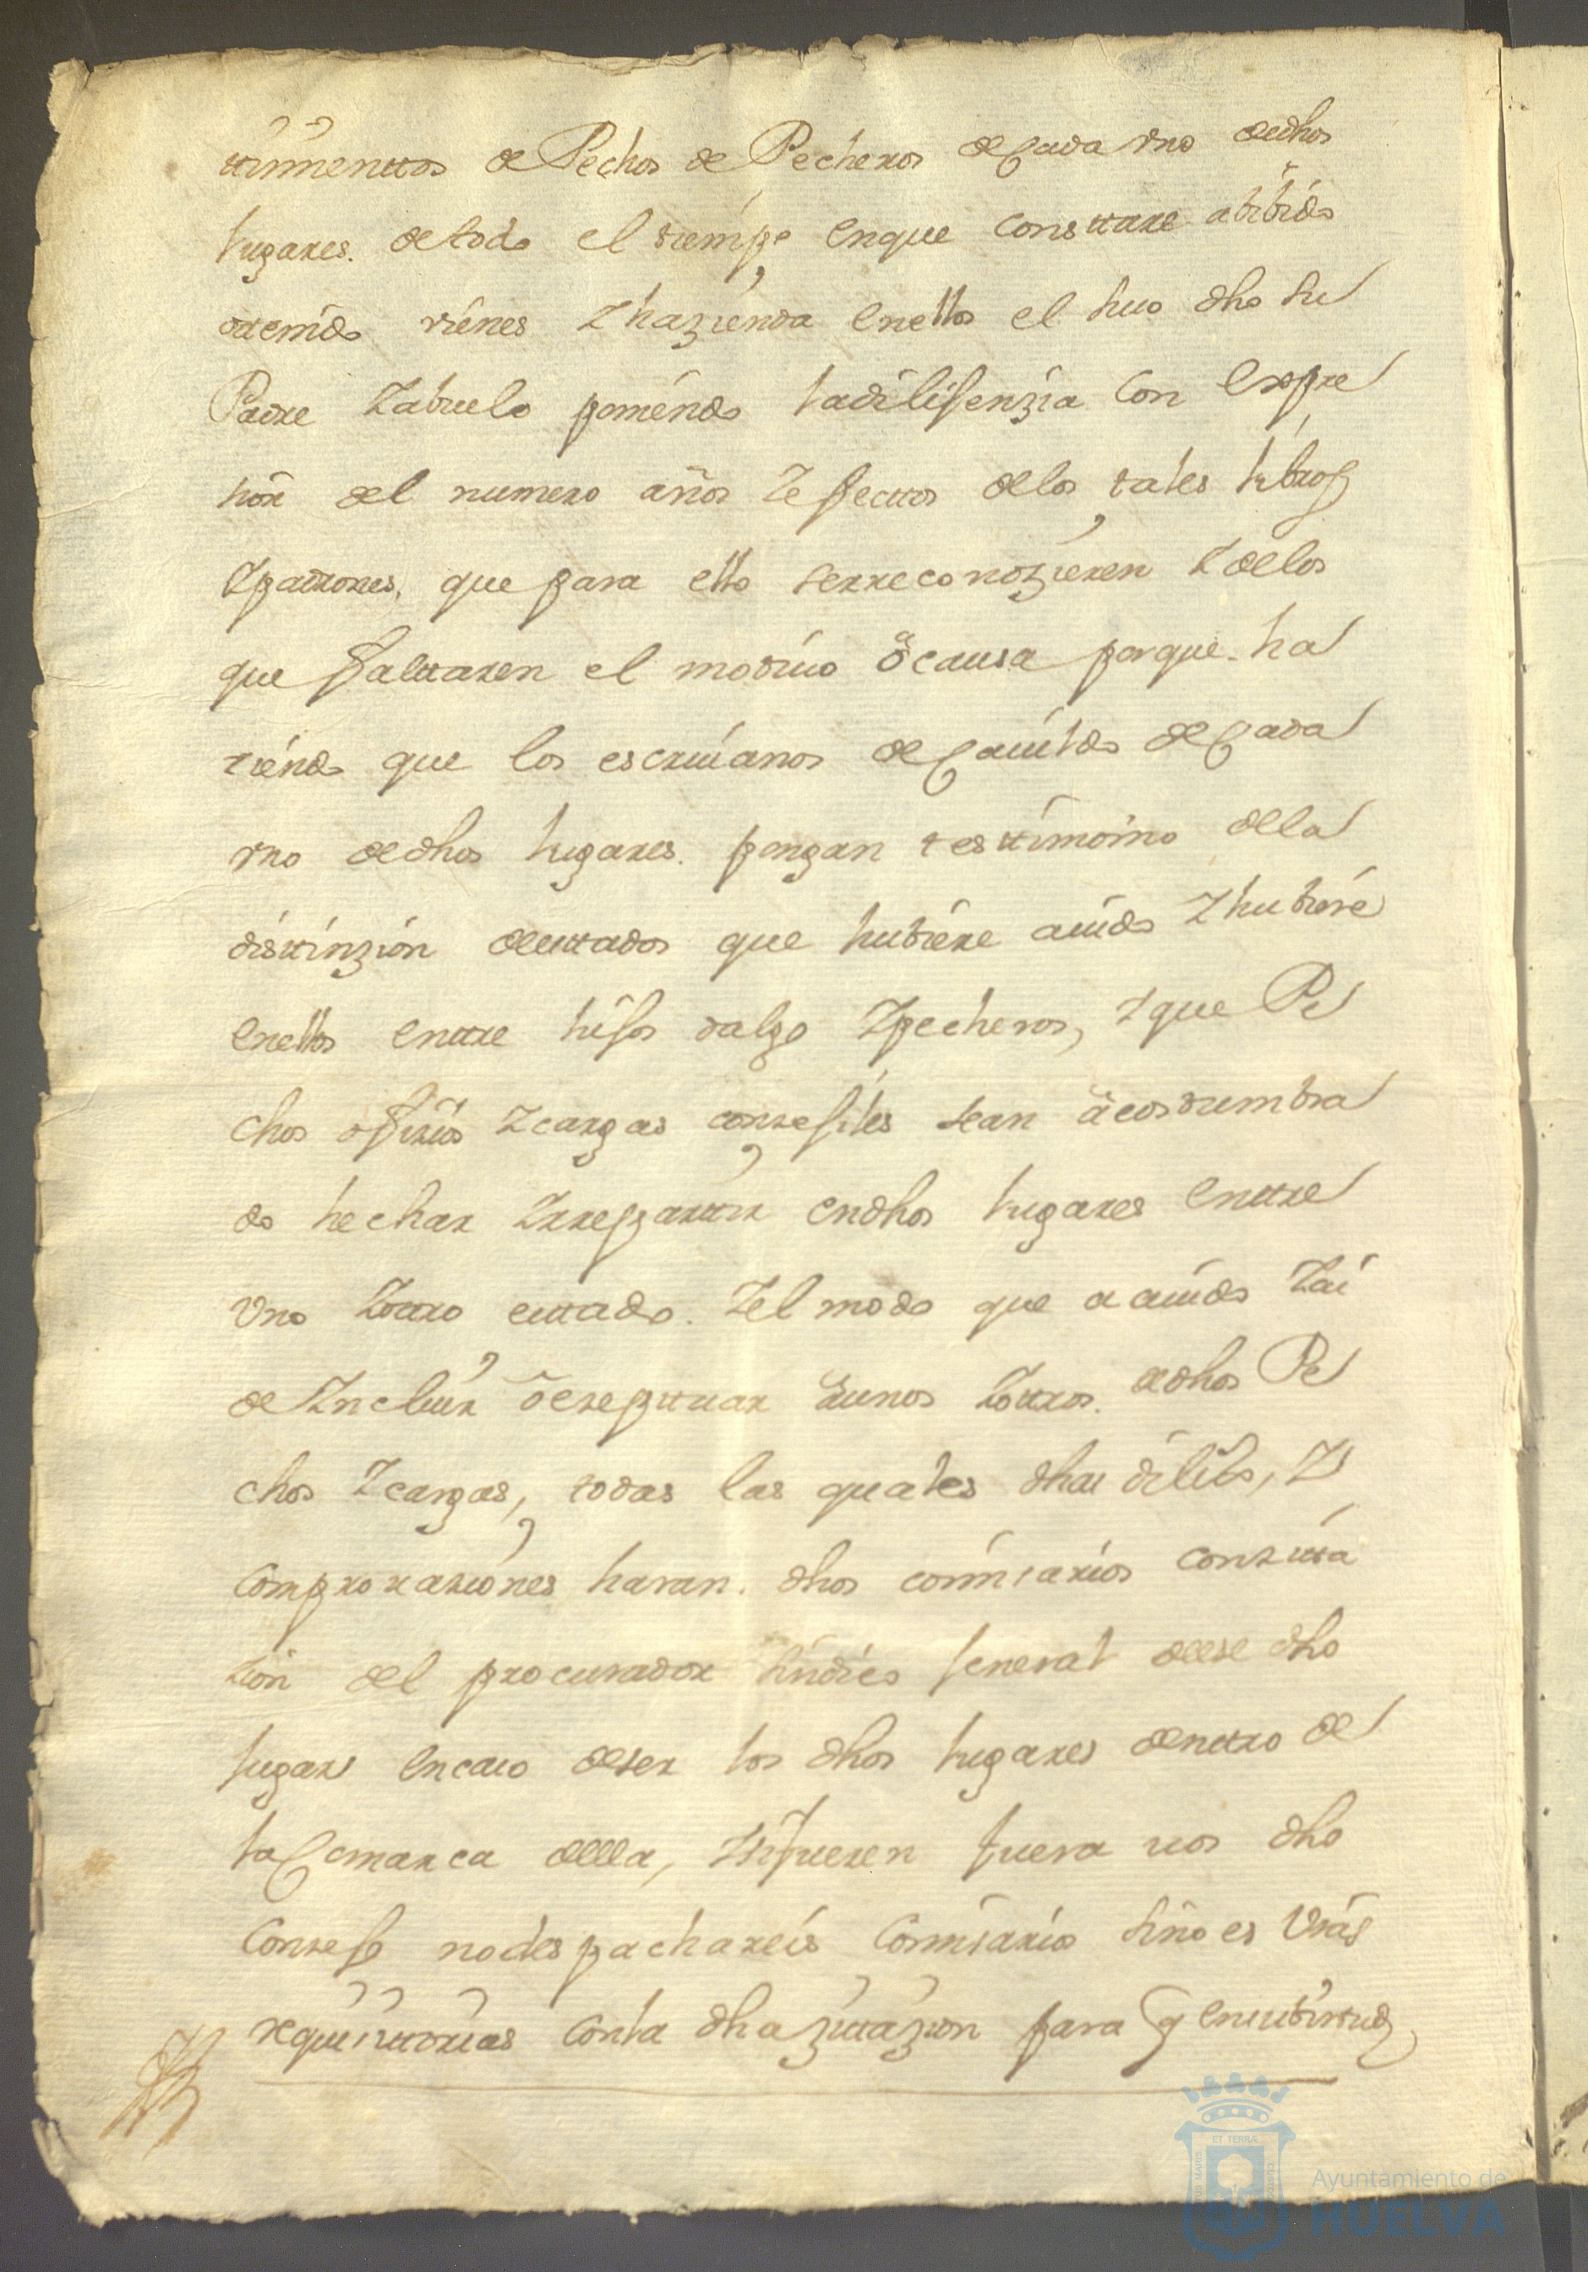 timenttos de Pechos de Pecheros de Cada vno dedhos
lugares. de todo el tiempo enque Consttare abibido
ottenido vienes Y hazienda enellos el suso dho su
Padre Yabuelo poniendo la dilijenzia Con Expre
sion del numero años Yefecttos delos tales libros
Ypadrones, que para ello serreconozieren Y delos
que falttaren el modiuo o causa porque. ha
ziendo que los escriuanos de Cauildo de Cada
vno dedhos lugares. pongan testtimonio dela
disttinzion deesttados que hubiere auido Y hubiere
enellos enttre hijos dalgo Ypecheros, Yque Pe
chos ofizios Ycargas conzejiles sean acostumbra
do hechar Yrreparttir endhos lugares enttre
Vno Yottro esttado. Yel modo que a auido Yai
de Yncluir o exepttuar aunos Yottros. dedhos Pe
chos Ycargas, todas las quales dhas dilixs, Y
Comprovaziones haran. dhos comisarios conzitta
zion del procurador sindico jeneral deese dho
lugar encaso deser los dhos lugares denttro de
la Comarca della, Ysifueren fuera uos dho
Conzejo nodespachareis Comisario sino es Vras
requisittorias Conla dha zittazion para q enuirtud
ET TERRAE
Ayuntamiento de
HUELVA